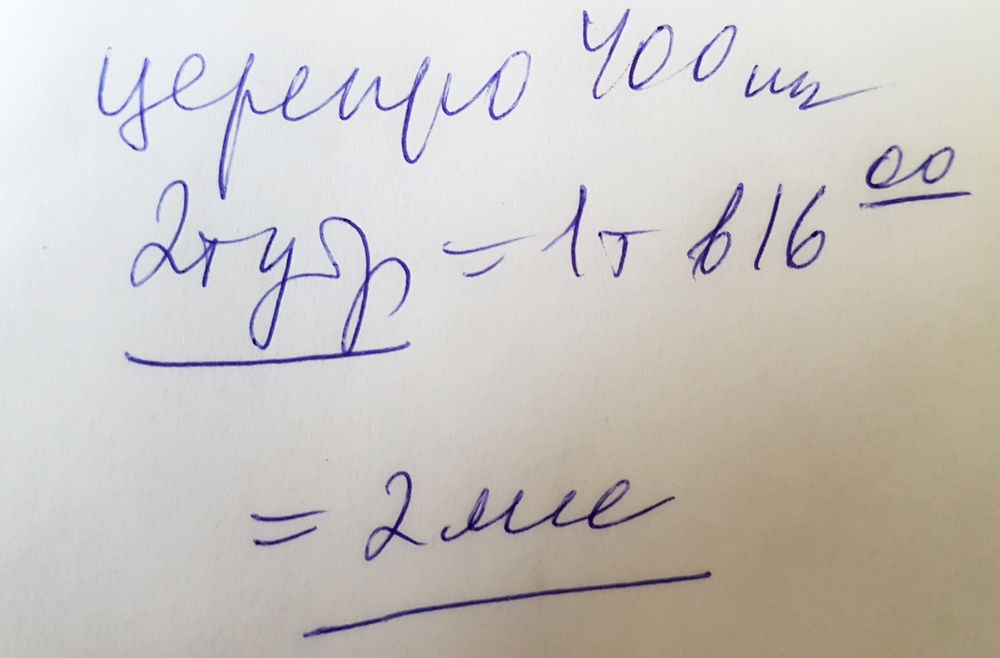 церепро 400 мг
2т утр = 1т в 16 00
= 2 мес